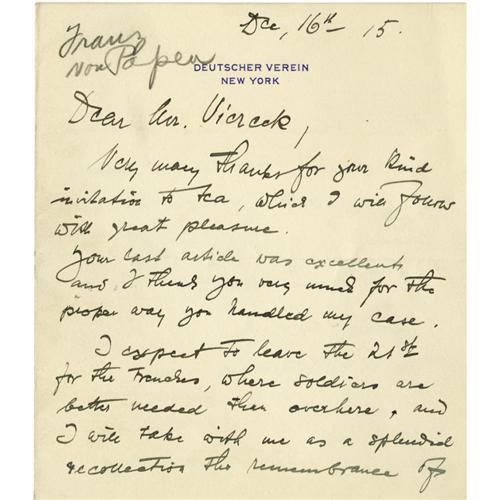 Dec, 16th 15.
Franz
von Papen
DEUTSCHER VEREIN
NEW YORK
Dear Mr. Viereck,
Very many thanks for your kind
invitation to tea, which I will follow
with great pleasure.
Your last article was excellent
and I thank you very much for the
proper way you handled my case.
I expect to leave the 21st
for the trenches, where soldiers are
better needed then overhere, and
I will take with me as a splendid
recollection the remembrance of